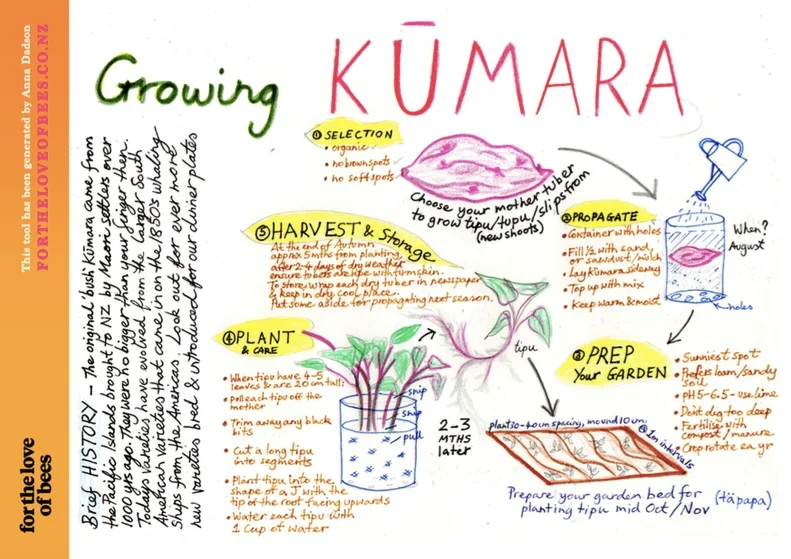 This tool has been generated by Anna Dadson
FORTHELOVEOFBEES.CO.NZ
for the love
of bees
Growing KŪMARA
Brief HISTORY – The original 'bush' Kūmara came from
the Pacific Islands brought to NZ by Maori settlers over
1000 yrs ago. They were no bigger than your finger then.
Todays varieties have evolved from the larger South
American varieties that came in on the 1850s whaling
ships from the Americas. Look out for ever more
new varieties bred & introduced for our dinner plates
① SELECTION
• organic
• no brown spots
• no soft spots
Choose your mother tuber
to grow tipu/tupu/slips from
(new shoots)
② PROPAGATE
• Container with holes
• Fill ½ with sand,
or sawdust/mulch
• Lay Kūmara sideways
• Top up with mix
• Keep warm & moist
When?
August
holes
③ PREP
Your GARDEN
• Sunniest spot
• Prefers loam/sandy
soil
• PH 5-6.5 - use lime
• Don't dig too deep
• Fertilise with
compost/manure
• Crop rotate ea yr
plant 30-40cm spacing, mound 10cm.
@ 1m intervals
Prepare your garden bed for
planting tipu mid Oct/Nov
(tāpapa)
2-3
MTHS
later
tipu
④ PLANT
& CARE
• When tipu have 4-5
leaves & are 20cm tall:
• pull each tipu off the
mother
• Trim away any black
bits
• Cut a long tipu
into segments
• Plant tipu into the
shape of a J with the
tip of the root facing upwards
• Water each tipu with
1 Cup of water
snip
snip
pull
⑤ HARVEST & Storage
At the end of Autumn
approx 5 mths from planting,
after 2-4 days of dry weather
ensure tubers are ripe with firm skin.
To store, wrap each dry tuber in newspaper
& keep in dry, cool place.
Put some aside for propagating next season.